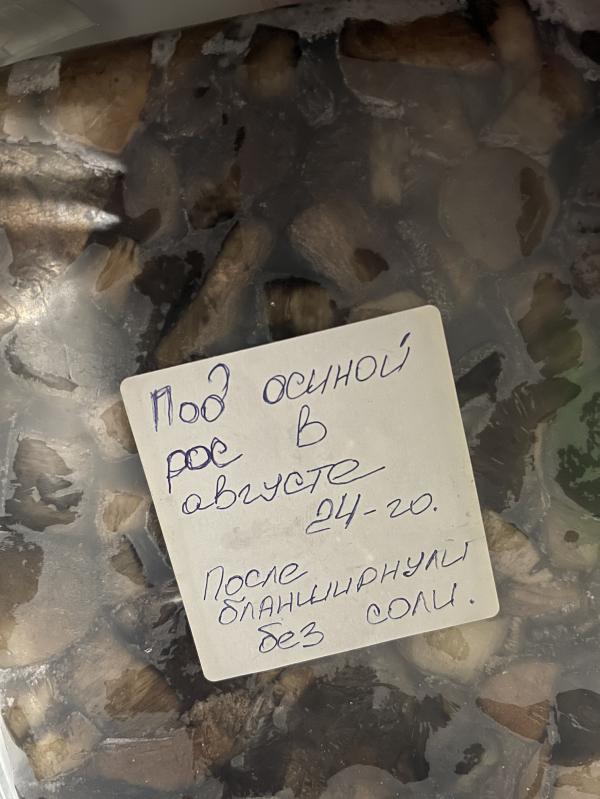 Под осиной
рос в
августе
24-го.
После
бланширнули
без соли.